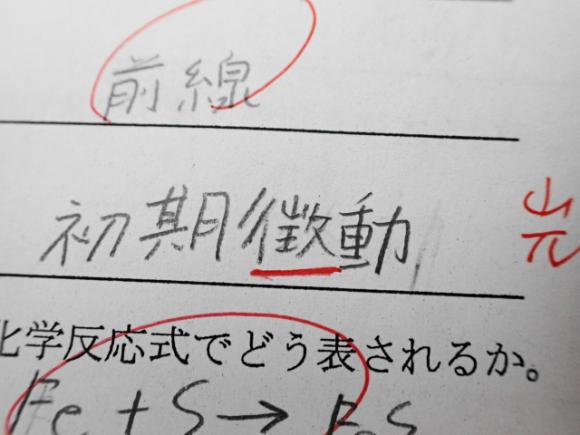 前線
初期徴動
山
兀
化学反応式でどう表されるか。
Fe + S → FeS